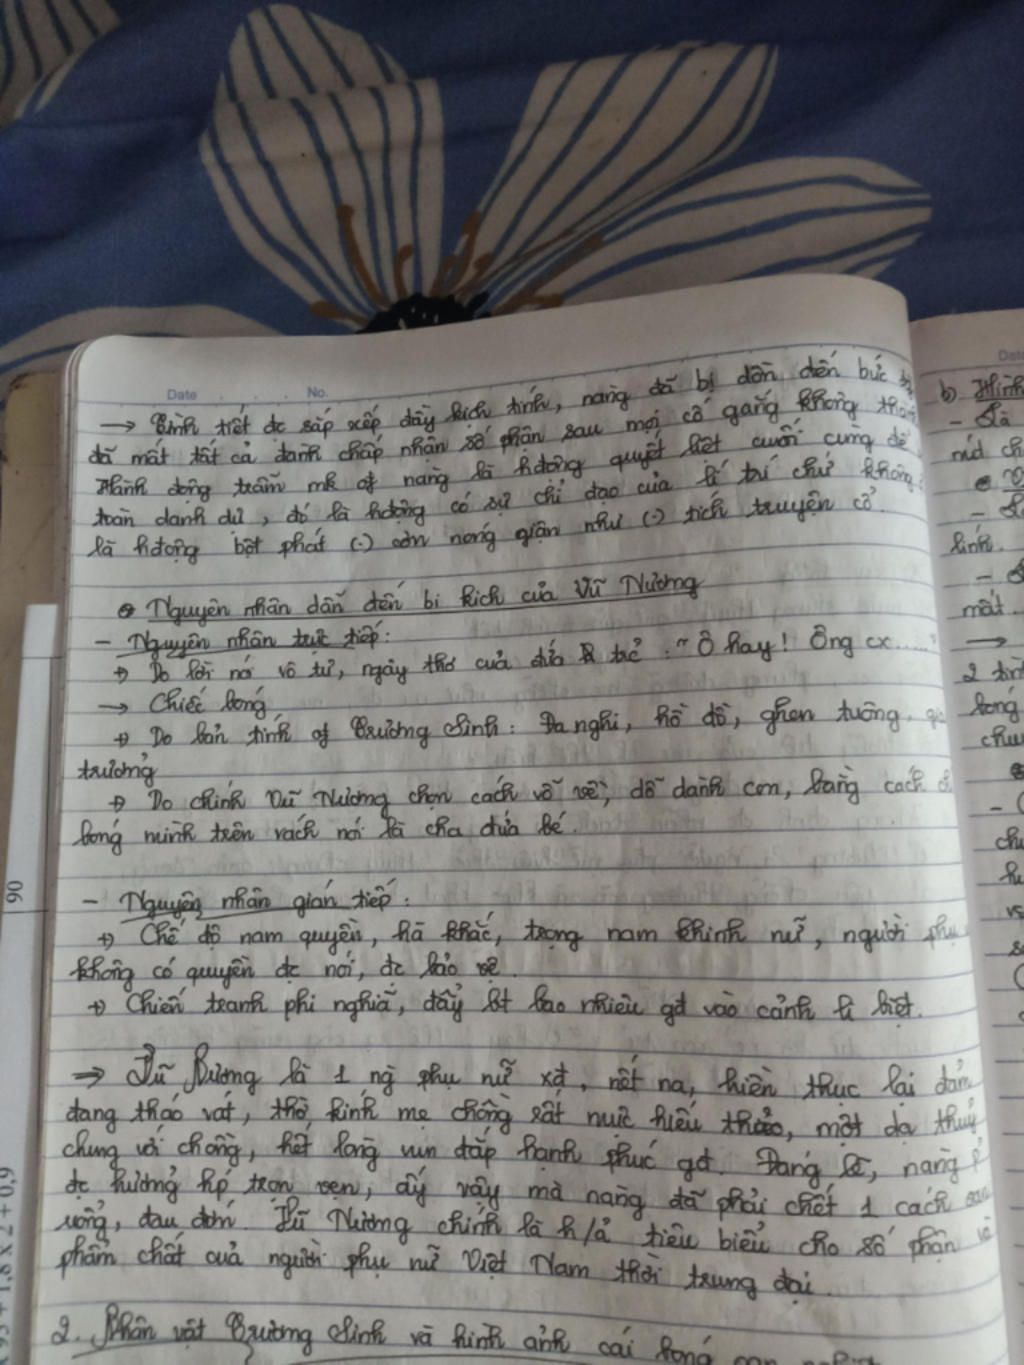 Date No.
→ Tình tiết đc sắp xếp đầy kịch tính, nàng đã bị dồn đến bức
đã mất tất cả đành chấp nhận số phận sau mọi cố gắng không
Hành động trầm mk of nàng là hđộng quyết liệt cuối cùng để
toàn danh dự, đó là hđộng có sự chỉ đạo của lí trí chứ không
là hđộng bột phát (-) cơn nóng giận như (-) tích truyện cổ.
Nguyên nhân dẫn đến bi kịch của Vũ Nương
- Nguyên nhân trực tiếp:
+) Do lời nói vô tư, ngây thơ của đứa trẻ: "Ô hay! Ông cx.....
→ Chiếc bóng
+) Do bản tính of Trương Sinh: Đa nghi, hồ đồ, ghen tuông, gia
trưởng
+) Do chính Vũ Nương chọn cách vỗ về, dỗ dành con, bằng cách
bóng mình trên vách nói là cha đứa bé.
- Nguyên nhân gián tiếp:
+) Chế độ nam quyền, hà khắc, trọng nam khinh nữ, người phụ
không có quyền đc nói, đc bảo vệ.
+) Chiến tranh phi nghĩa, đẩy bt bao nhiêu gđ vào cảnh li biệt.
⇒ Vũ Nương là 1 ng phụ nữ xđ, nết na, hiền thục lại đảm
đang tháo vát, thờ kính mẹ chồng rất mực hiếu thảo, một dạ thuỷ
chung với chồng, hết lòng vun đắp hạnh phúc gđ. Đáng lẽ, nàng
đc hưởng hp trọn vẹn, ấy vậy mà nàng đã phải chết 1 cách oan
uổng, đau đớn. Vũ Nương chính là h/ả tiêu biểu cho số phận và
phẩm chất của người phụ nữ Việt Nam thời trung đại.
2. Nhân vật Trương Sinh và hình ảnh cái bóng
b) Hình
- Là
2 tìn
bóng
90